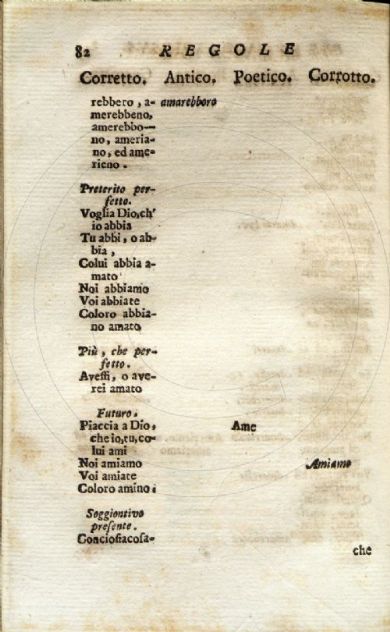 82 REGOLE
Corretto. Antico. Poetico. Corrotto.
rebbero, a- amarebboro
merebbeno,
amerebbo-
no, ameria-
no, ed ame-
rieno.
Preterito per-
fetto.
Voglia Dio, ch'
io abbia
Tu abbi, o ab-
bia,
Colui abbia a-
mato
Noi abbiamo
Voi abbiate
Coloro abbia-
no amato
Più, che per-
fetto.
Avessi, o ave-
rei amato
Futuro.
Piaccia a Dio, Ame
che io, tu, co-
lui ami
Noi amiamo Amiamo
Voi amiate
Coloro amino.
Soggiontivo
presente.
Conciosiacosa-
che